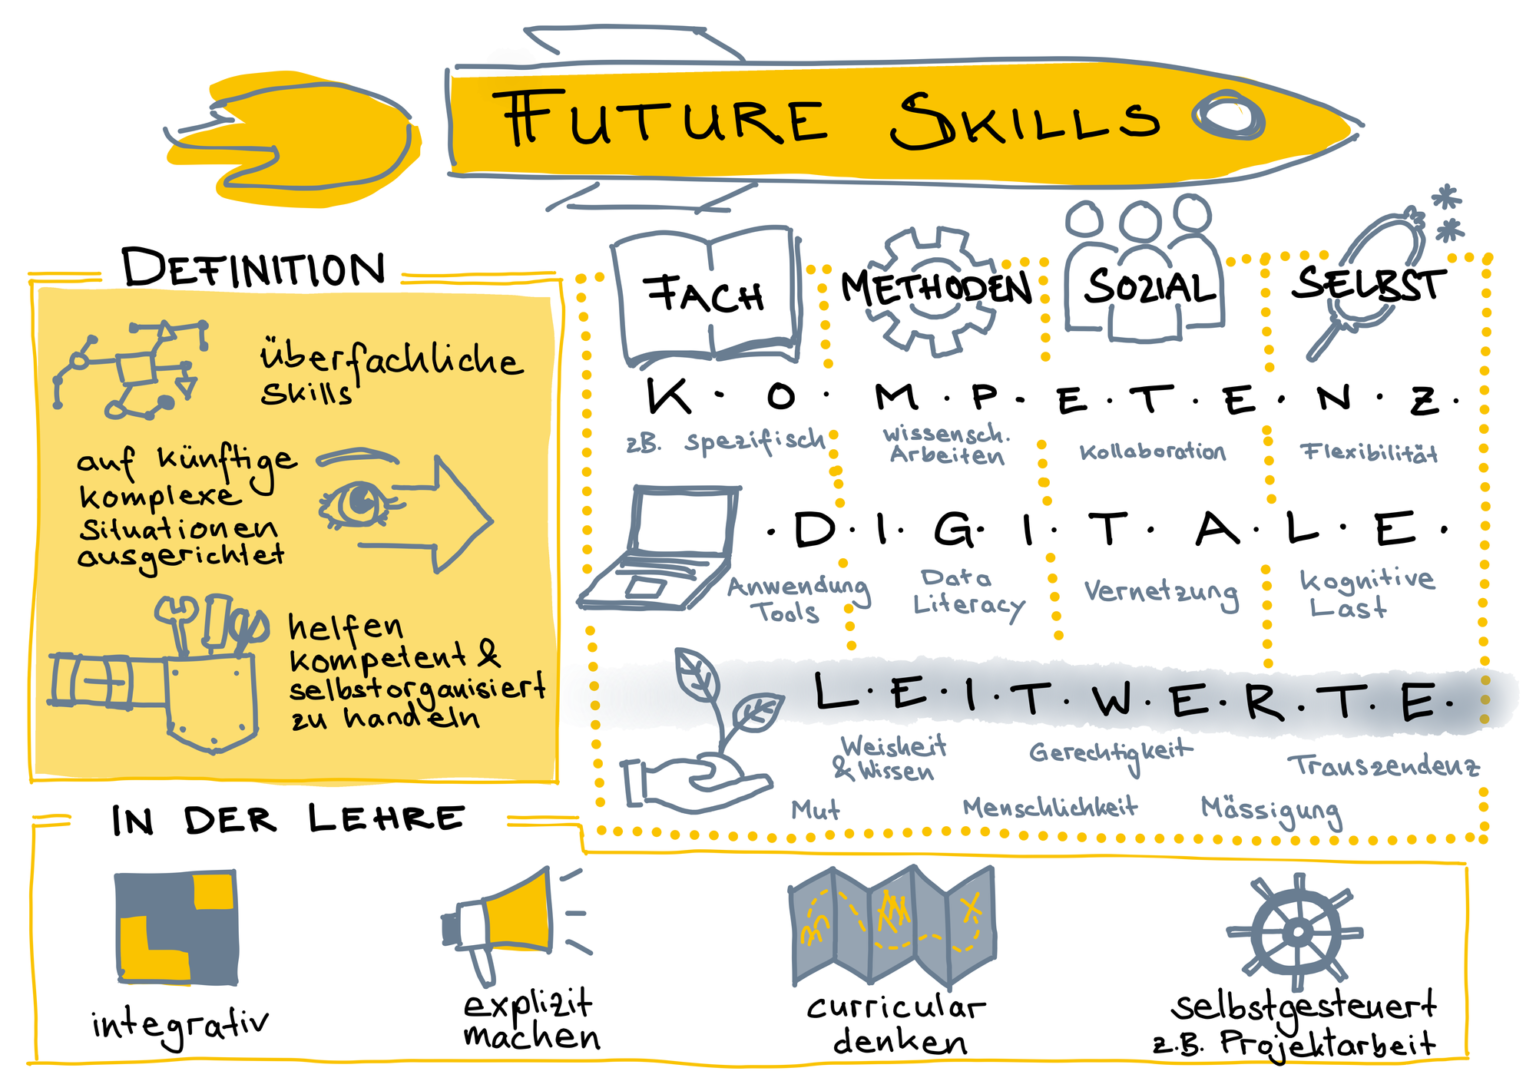 FUTURE SKILLS
DEFINITION
überfachliche
Skills
auf künftige
komplexe
Situationen
ausgerichtet
helfen
kompetent &
selbstorganisiert
zu handeln
FACH
METHODEN
SOZIAL
SELBST
K·O·M·P·E·T·E·N·Z·
zB. spezifisch
wissensch.
Arbeiten
Kollaboration
Flexibilität
·D·I·G·I·T·A·L·E·
Anwendung
Tools
Data
Literacy
Vernetzung
Kognitive
Last
L·E·I·T·W·E·R·T·E·
Weisheit
& Wissen
Gerechtigkeit
Transzendenz
Mut
Menschlichkeit
Mässigung
IN DER LEHRE
integrativ
explizit
machen
curricular
denken
selbstgesteuert
z.B. Projektarbeit